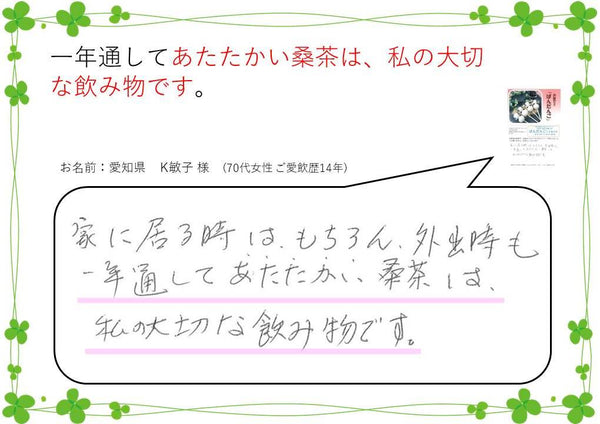 一年通してあたたかい桑茶は、私の大切
な飲み物です。
お名前：愛知県　K敏子 様　(70代女性 ご愛飲歴14年)
家に居る時は、もちろん、外出時も
一年通してあたたかい桑茶は、
私の大切な飲み物です。